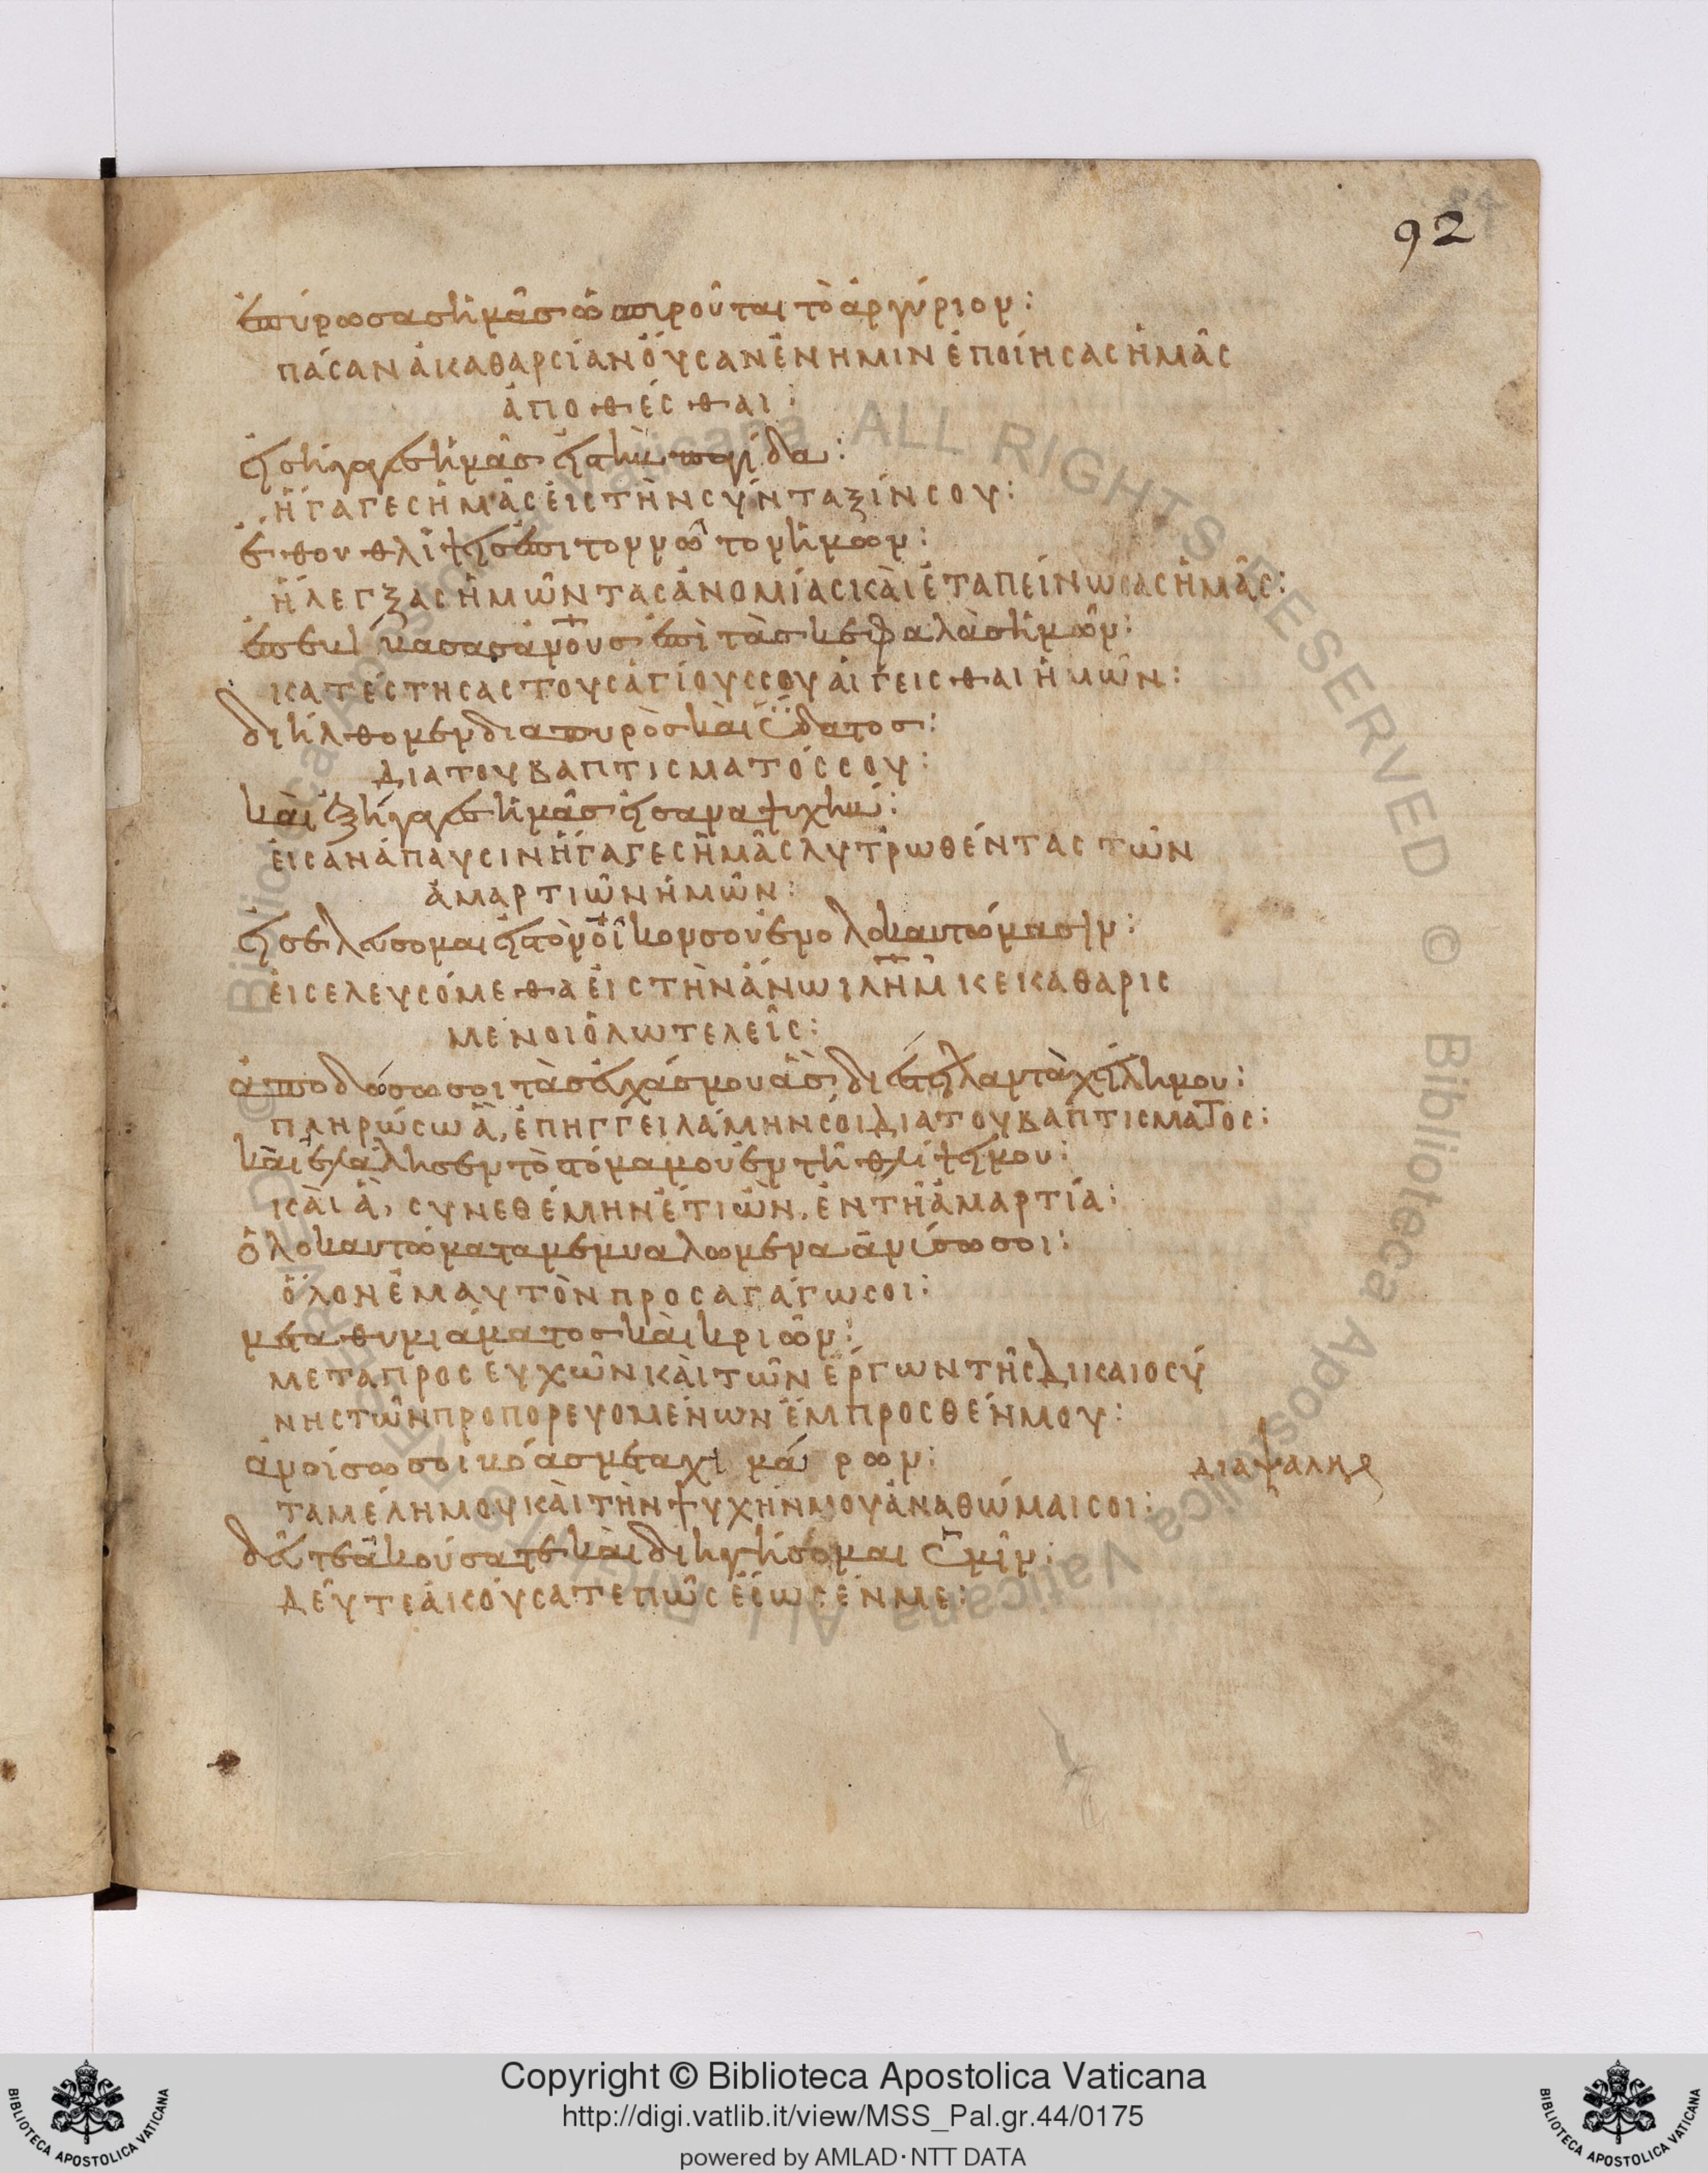 92
ἐπύρωσας ἡμᾶς ὡς πυροῦται τὸ ἀργύριον:
πάσαν ἀκαθαρσίαν ὀύσαν ἐν ημιν ἐποίησας ἡμᾶς
ἀποθέσθαι:
εἰσήγαγες ἡμᾶς εἰς τὴν παγίδα:
ἤγαγες ἡμᾶς εἰς τὴν σύνταξίν σου:
ἔθου θλίψεις ἐπι τον νῶτον ἡμων:
ἤλεγξας ἡμῶν τας ἀνομίας κὰι ἐταπείνωσας ἡμᾶς:
ἐπεβίβασας ἀνους ἐπὶ τὰς κεφαλὰς ἡμῶν:
κατέστησας τους ἁγίους σου ἁιγεισθαι ἡμῶν:
διήλθομεν δια πυρὸς κὰι ὕδατος:
δια του βαπτισματός σου:
κὰι ἐξήγαγες ἡμᾶς εἰς αναψυχήν:
ἐις ἀνάπαυσιν ἤγαγες ἡμᾶς λυτρωθέντας τῶν
ἁμαρτιῶν ἡμῶν:
εἰσελεύσομαι εἰς τὸν οἶκον σου ἐν ολοκαυτώμασιν:
ἐισελευσόμεθα ἐις τὴν ἄνω ιλημ κεκαθαρις
μένοι ὁλωτελεῖς:
ἀποδώσω σοι τὰς εὐχάς μου ἃς διέστειλαν τὰ χείλη μου:
πληρώσω ἃ, ἐπηγγειλάμην σοι δια του βαπτισματος:
κὰι ἐλάλησεν τὸ στόμα μου ἐν τῆ θλίψει μου:
κὰι ἃ, συνεθέμην ἔτι ὢν, ἐν τῆ ἁμαρτία:
ὁλοκαυτώματα μεμυαλωμένα ἀνίσω σοι:
ὅλον ἐμαυτὸν προσαγάγω σοι:
μετα θυμιάματος κὰι κριῶν:
μετα προσευχῶν κὰι τῶν ἔργων τῆς δικαιοσύ
νης τῶν προπορευομένων ἔμπροσθέν μου:
ἀνοίσω σοι βόας μετα χιμάρων: διαψαλμα
τα μέλη μου κὰι τὴν ψυχήν μου ἀναθώμαι σοι:
δεῦτε ἀκούσατε κὰι διηγήσομαι ὑμῖν:
δεῦτε ἀκούσατε πῶς ἔσωσέν με:
Copyright © Biblioteca Apostolica Vaticana
http://digi.vatlib.it/view/MSS_Pal.gr.44/0175
powered by AMLAD·NTT DATA
BIBLIOTECA APOSTOLICA VATICANA
BIBLIOTECA APOSTOLICA VATICANA